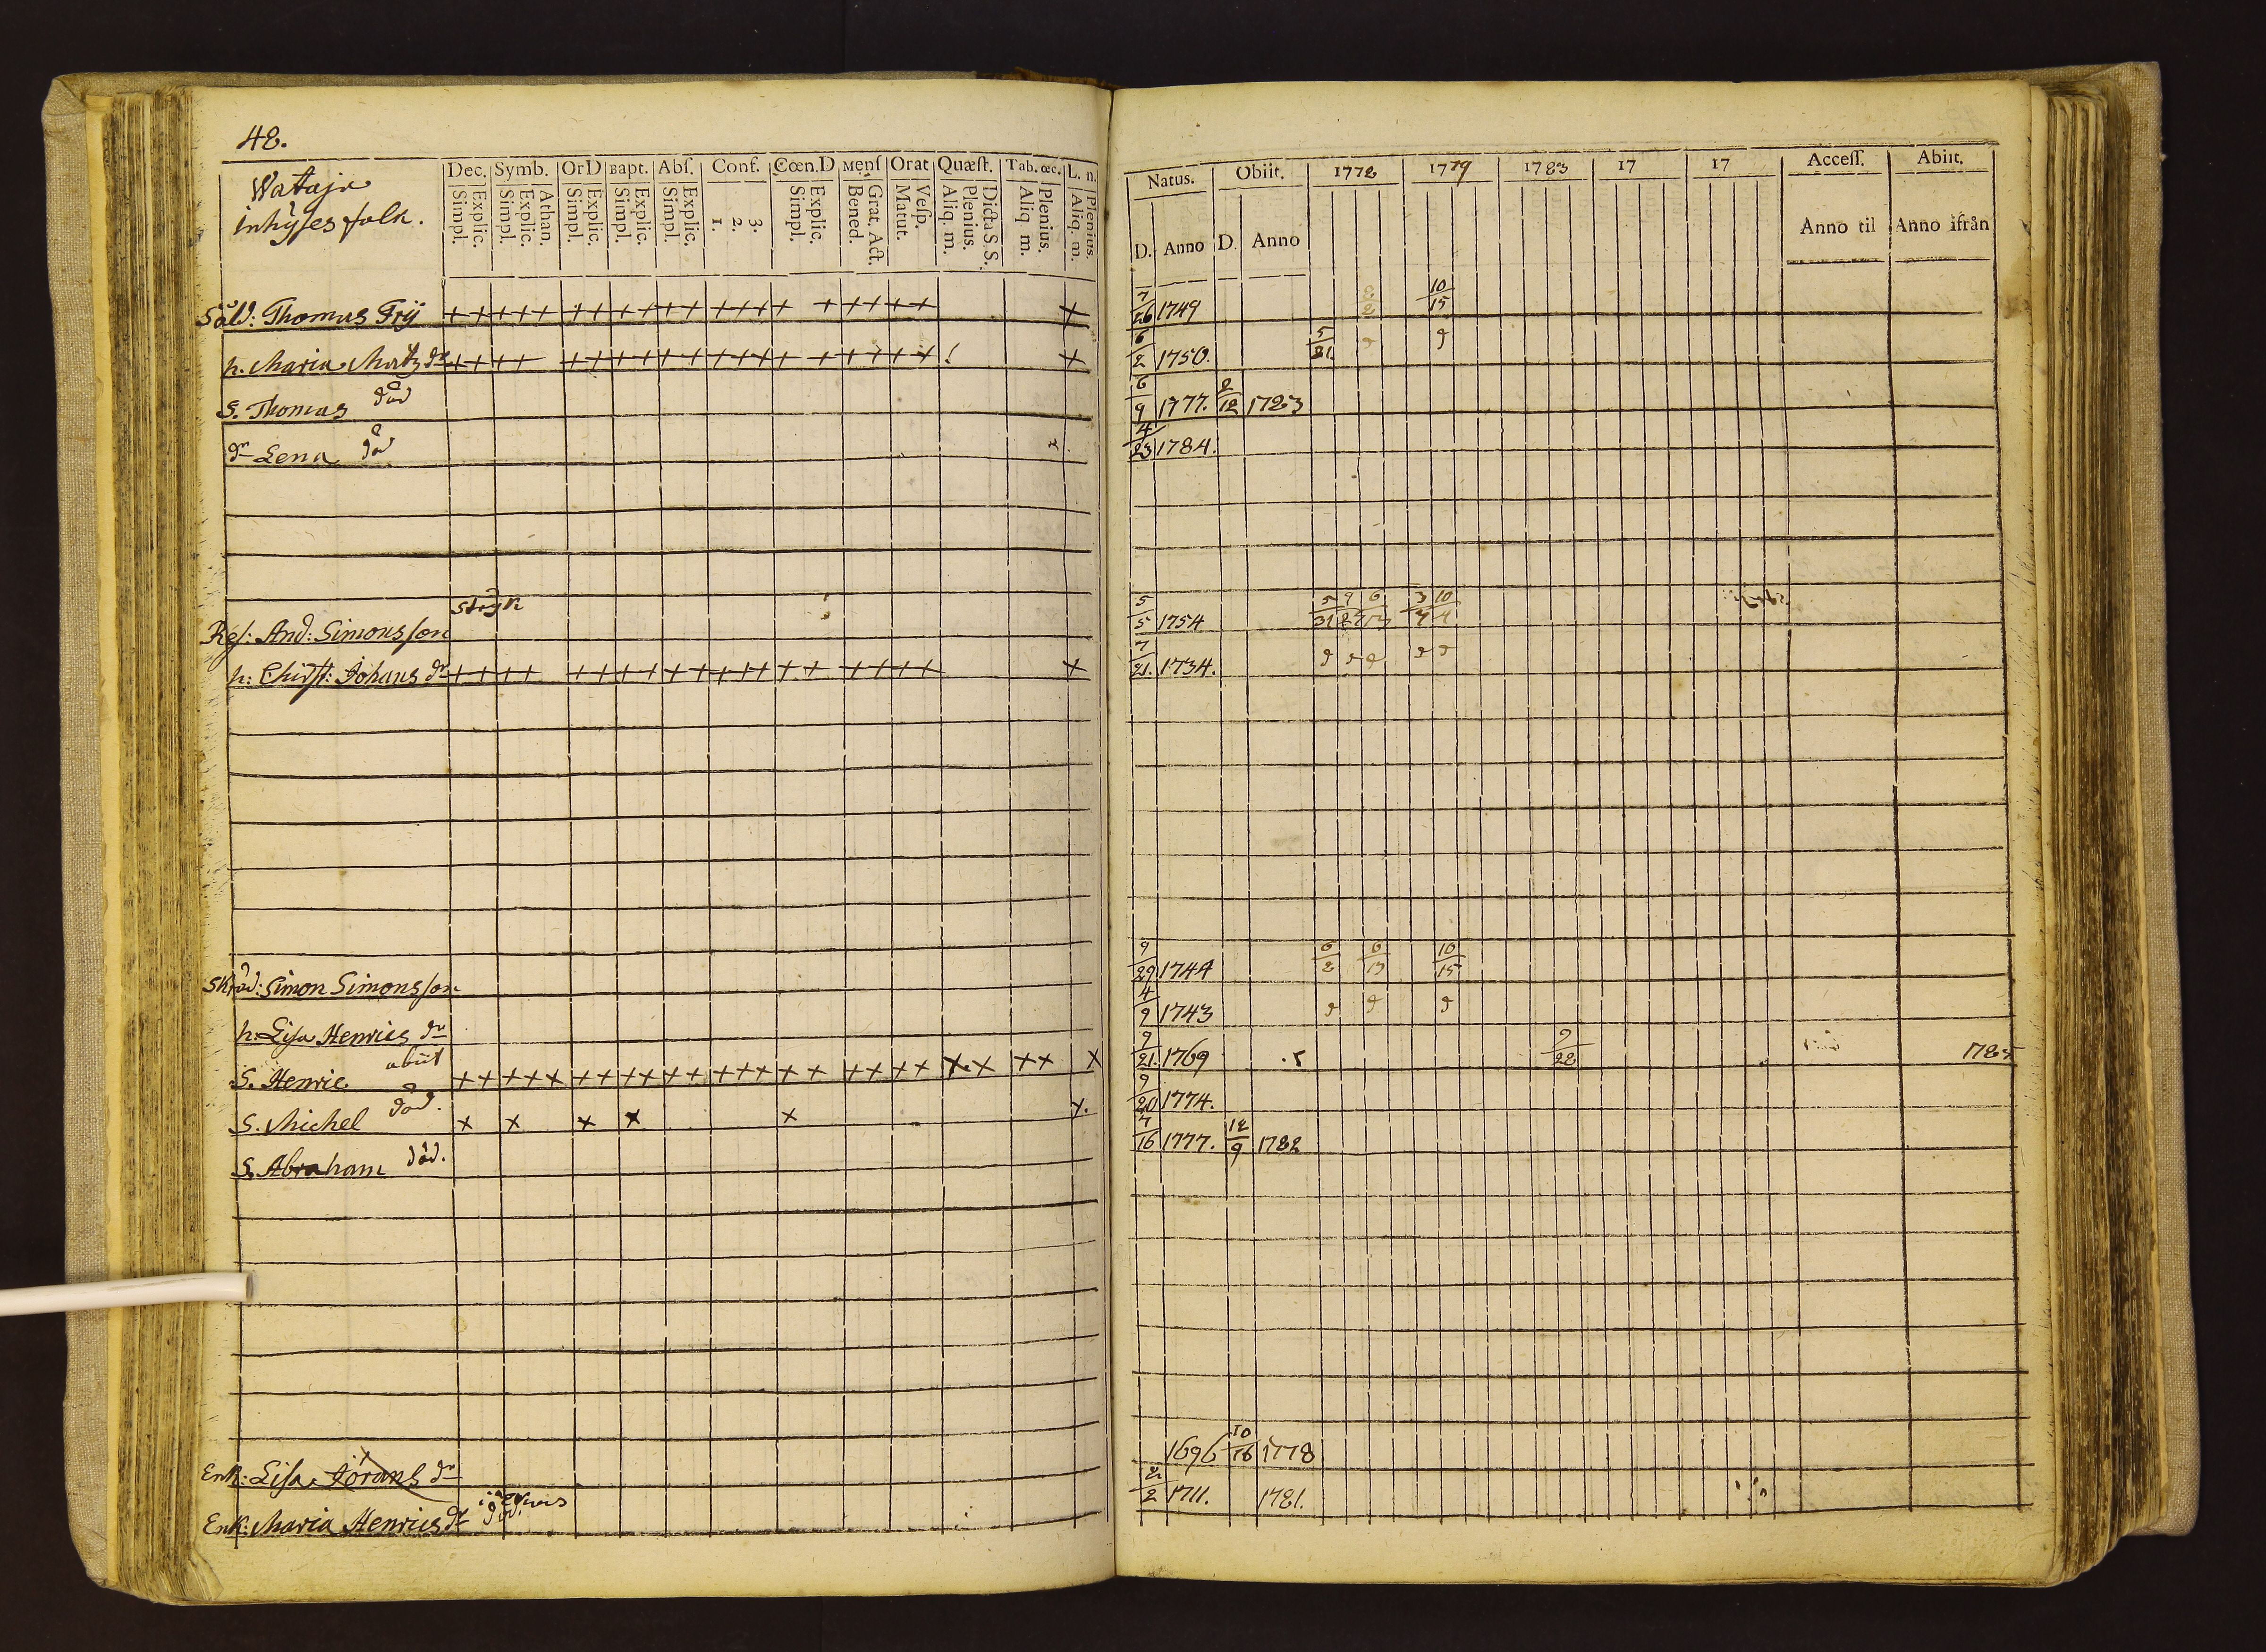 48.
Wataja
inhyses folk.
Dec. Symb. OrD Bapt. Abſ. Conf. Cœn.D Menſ Orat Quæſt. Tab. œc. L. n.
Simpl. Explic. Simpl. Explic. Athan. Simpl. Explic. Simpl. Explic. Simpl. Explic. 1. 2. 3. Simpl. Explic. Bened. Grat. Act. Matut. Veſp. Aliq. m. Plenius. Dicta S. S. Aliq m. Plenius. Aliq. m. Plenius.
Natus. Obiit. 1772 1779 1783 17 17 Acceſſ. Abiit.
D. Anno D. Anno Anno til Anno ifrån
Såld: Thomas Frij + + + + + + + + + + + + + + + + + + + + + 7/26 1749 10/15
h. Maria Matz dr + + + + + + + + + + + + + + + + + + + + 6/2 1750. 5/21
S. Thomas död 6/9 1777. 2/12 1783
dr Lena död x 4/23 1784.
stryk
Ref: And: Simonsson 5/5 1754 3 10
h: Christ: Johans dr + + + + + + + + + + + + + + + + + + + + 7/21. 1734.
Skräd: Simon Simonsson 9/29 1744 6/2 6/13 10/15
h: Lisa Henrics dr 4/9 1743
S. Henric abiit + + + + + + + + + + + + + + + + + + + + + x x + + x 9/21. 1769 9/28 1785
S. Michel död. x x x x x x. 9/20 1774.
S. Abraham död. 7/16 1777. 12/9 1782
Enk: Lisa Jörans dr 1696 10/18 1778
Enk: Maria Henrics dr död. 2/2 1711. 1781.